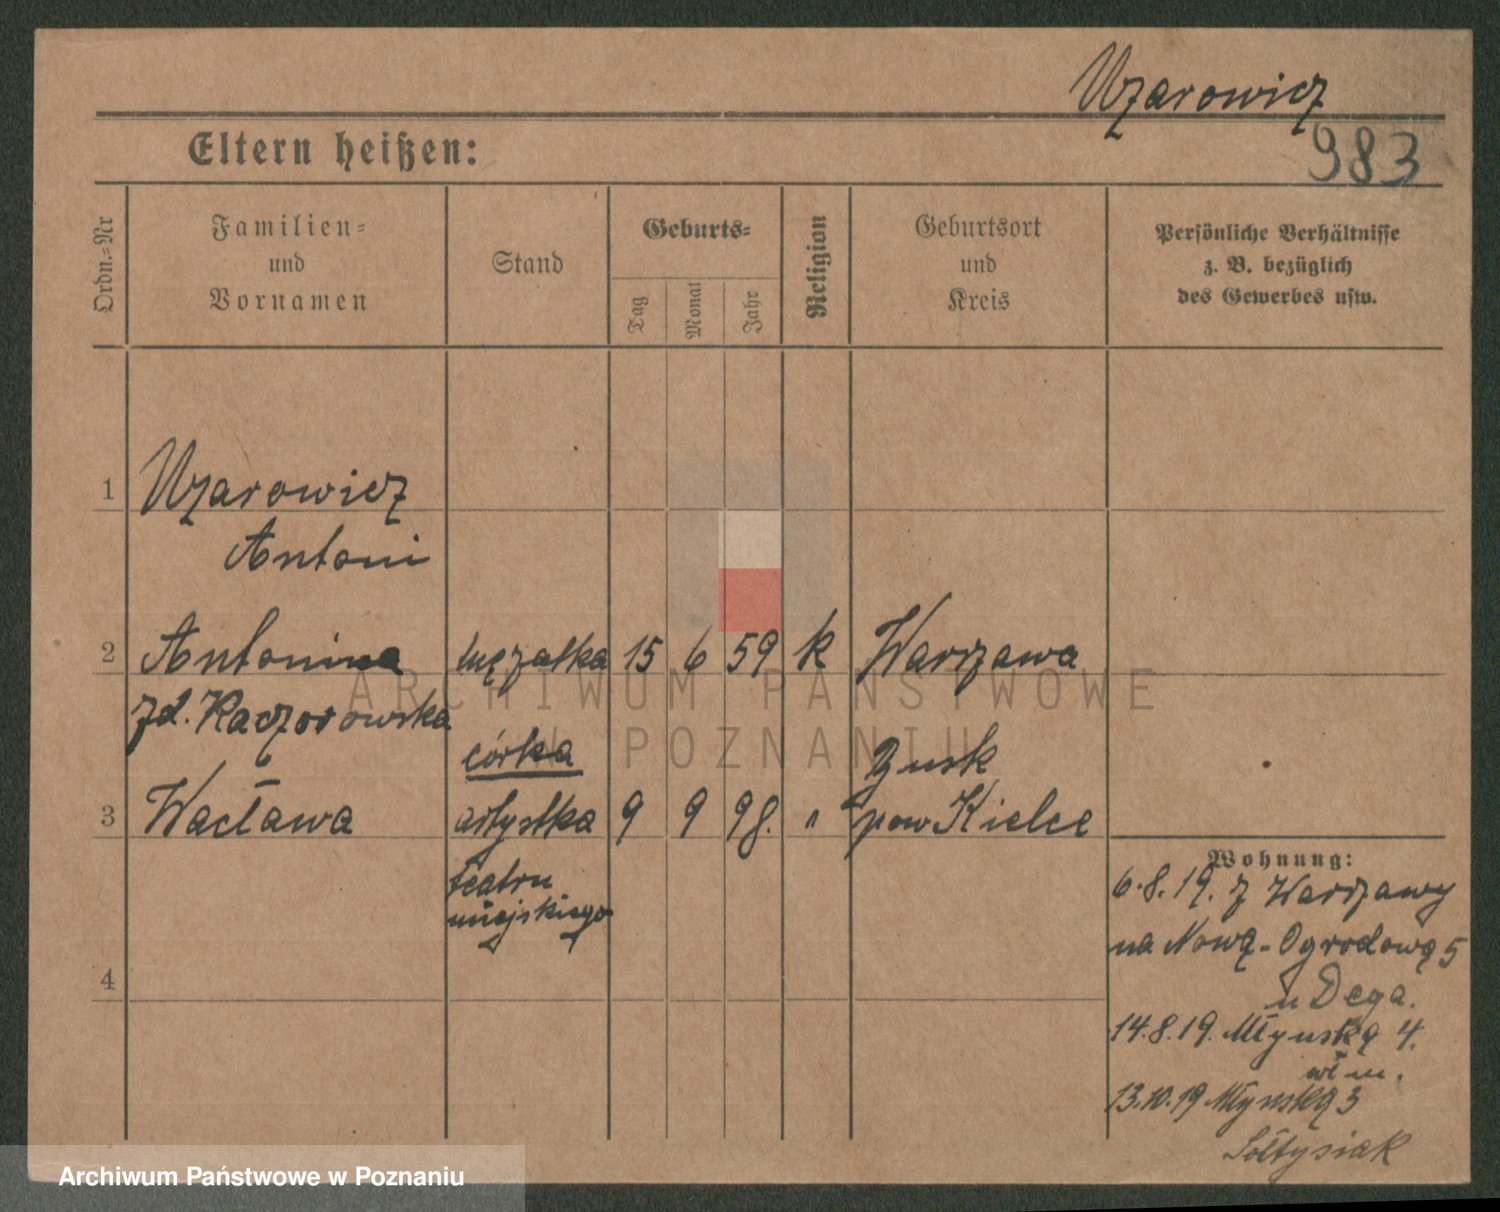 Uzarowicz
983
Eltern heißen:
Ordn.-Nr
Familien-
und
Vornamen
Stand
Geburts-
Tag
Monat
Jahr
Religion
Geburtsort
und
Kreis
Persönliche Verhältnisse
z. B. bezüglich
des Gewerbes usw.
1 Uzarowicz
Antoni
2 Antonina mężatka 15 6 59 k Warszawa
zd. Kaczorowska
córka
3 Wacława artystka 9 9 98. " pow Kielce
teatru
miejskiego
4
Wohnung:
6.8.19. z Warszawy
na Nową-Ogrodową 5
u Dega.
14.8.19. Młyńską 4.
wł m.
13.10.19 Młyńską 3
Sołtysiak
ARCHIWUM PAŃSTWOWE
W POZNANIU
Archiwum Państwowe w Poznaniu